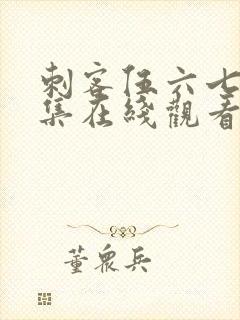 刺客伍六七
集在綫觀看
董眾兵